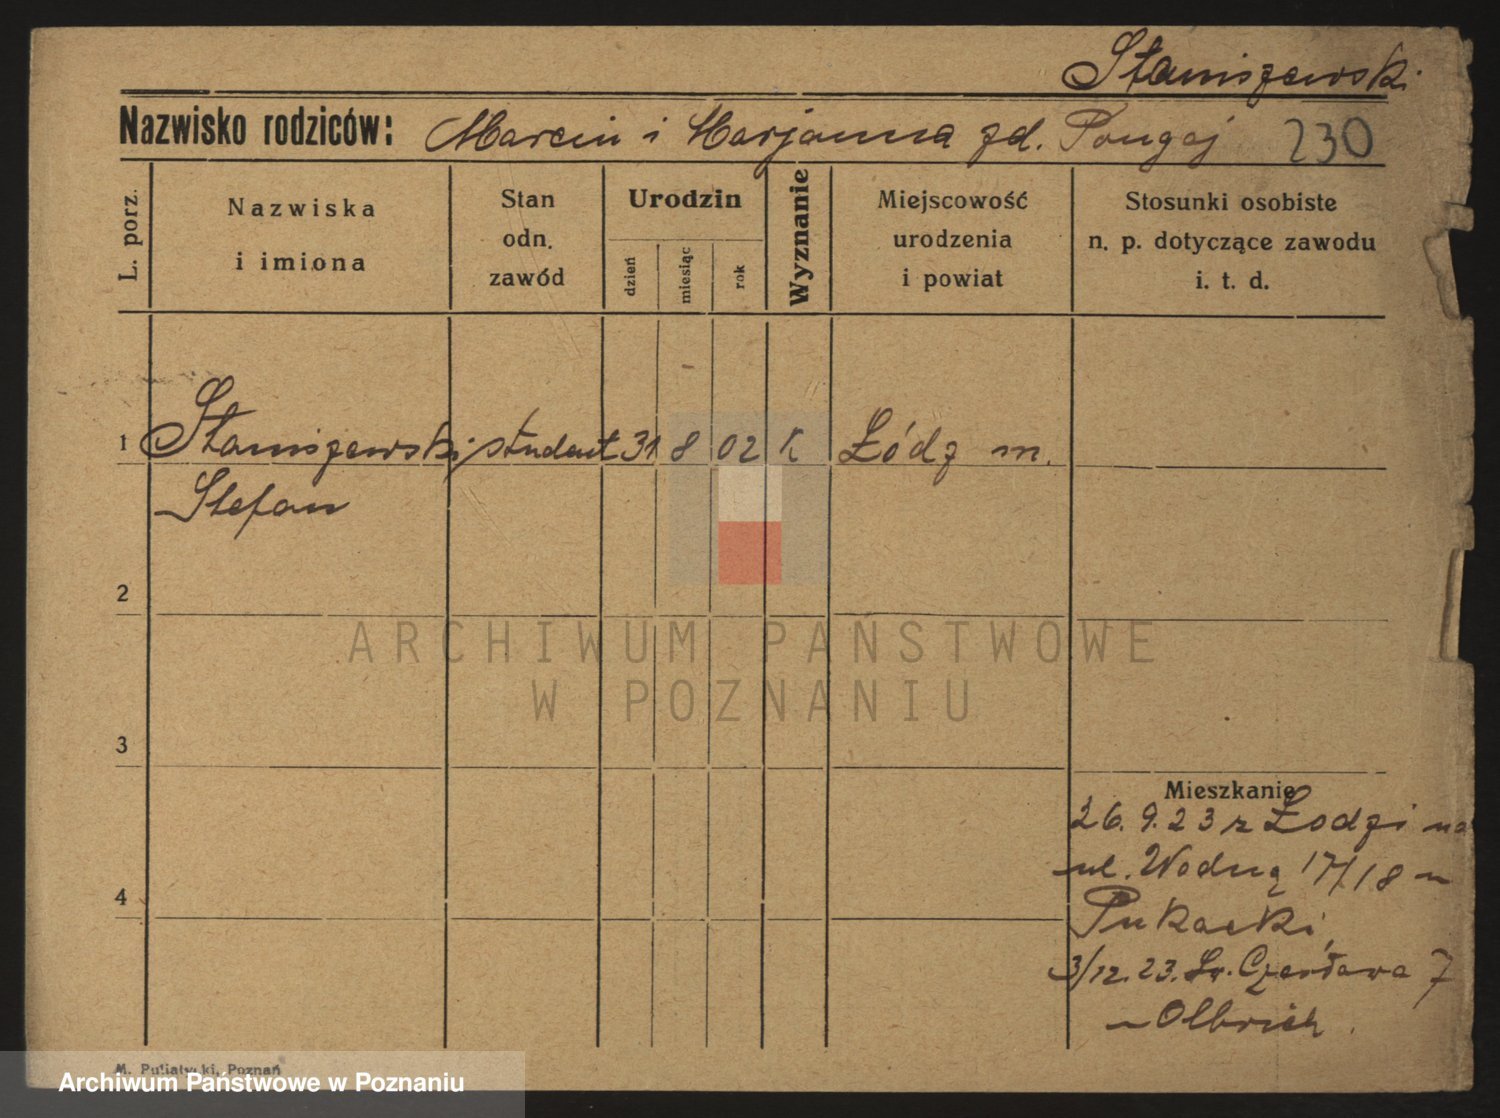 Staniszewski
Nazwisko rodziców: Marcin i Marjanna zd. Pongaj 230
L. porz.
Nazwiska
i imiona
Stan
odn.
zawód
Urodzin
dzień
miesiąc
rok
Wyznanie
Miejscowość
urodzenia
i powiat
Stosunki osobiste
n. p. dotyczące zawodu
i. t. d.
1 Staniszewski student 31 8 02 k Łódź m.
Stefan
2
ARCHIWUM PAŃSTWOWE
W POZNANIU
3
Mieszkanie
26. 9. 23 z Łodzi na
ul. Wodną 17/18 u
4
Pukacki
3/12. 23. Św. Czesława 7
u Olbrich.
M. Putiatycki, Poznań
Archiwum Państwowe w Poznaniu